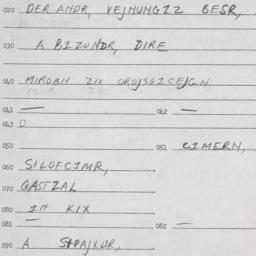 020 DER ANDR, VEJNUNGIZ BESR,
030 A BIZUNDR, DIRE
040 MIROBM ZIX OROJSGICEJGN,
041 — 042 —
043 0
050 051 CIMERN,
060 SILOFCIMR,
070 GASTZAL
080 IM KIX
081 — 082 —
090 A SPAJXUR,